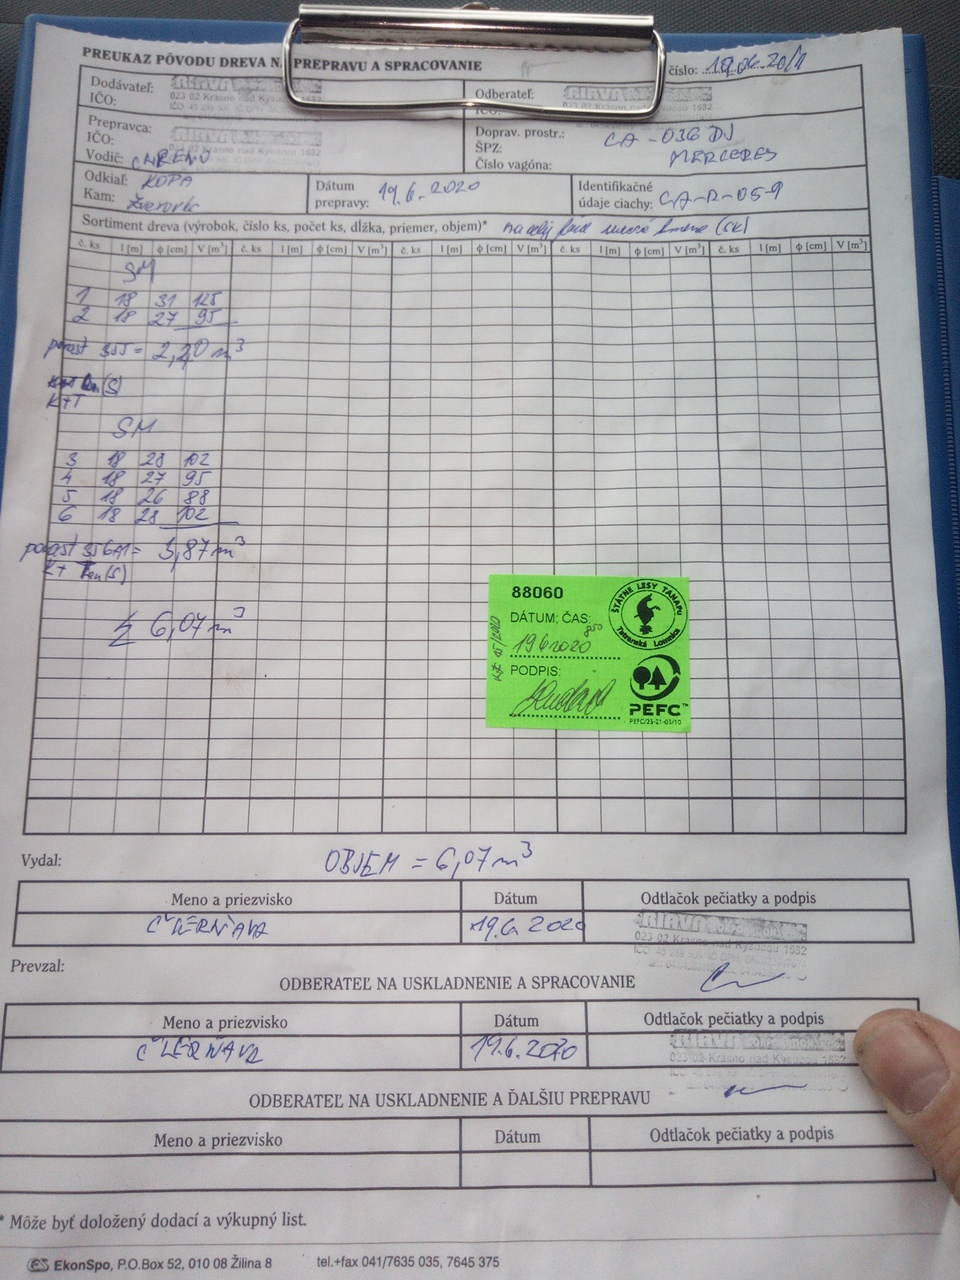 PREUKAZ PÔVODU DREVA NA PREPRAVU A SPRACOVANIE
číslo: 19.06.20/1
Dodávateľ:
IČO:
023 02 Krásno nad Kysucou 1632
Odberateľ:
IČO:
023 02 Krásno nad Kysucou 1632
Prepravca:
IČO:
023 02 Krásno nad Kysucou 1632
Vodič:
Doprav. prostr.: CA-036 DJ
ŠPZ: MERCEDES
Číslo vagóna:
Odkiaľ: KOPA
Kam: Zverovka
Dátum
prepravy: 19.6.2020
Identifikačné
údaje ciachy: CA-R-05-9
Sortiment dreva (výrobok, číslo ks, počet ks, dĺžka, priemer, objem)*
č. ks l [m] ϕ [cm] V [m³] č. ks l [m] ϕ [cm] V [m³] č. ks l [m] ϕ [cm] V [m³] č. ks l [m] ϕ [cm] V [m³] č. ks l [m] ϕ [cm] V [m³]
SM
1 18 31 125
2 18 27 95
porast 355 = 2,20 m³
K+T
SM
3 18 28 102
4 18 27 95
5 18 26 88
6 18 28 102
porast 356A1 = 3,87 m³
Σ 6,07 m³
88060
DÁTUM; ČAS:
19 6 2020
850
PODPIS:
ŠTÁTNE LESY TANAPU
Tatranská Lomnica
PEFC™
PEFC/23-21-03/10
Vydal:
OBJEM = 6,07 m³
Meno a priezvisko Dátum Odtlačok pečiatky a podpis
19.6.2020
023 02 Krásno nad Kysucou 1632
Prevzal:
ODBERATEĽ NA USKLADNENIE A SPRACOVANIE
Meno a priezvisko Dátum Odtlačok pečiatky a podpis
19.6.2020
023 02 Krásno nad Kysucou 1632
ODBERATEĽ NA USKLADNENIE A ĎALŠIU PREPRAVU
Meno a priezvisko Dátum Odtlačok pečiatky a podpis
* Môže byť doložený dodací a výkupný list.
EkonSpo, P.O.Box 52, 010 08 Žilina 8 tel.+fax 041/7635 035, 7645 375